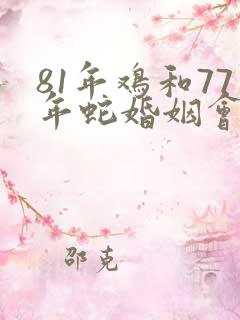 81年鸡和77
年蛇婚姻會
邵克